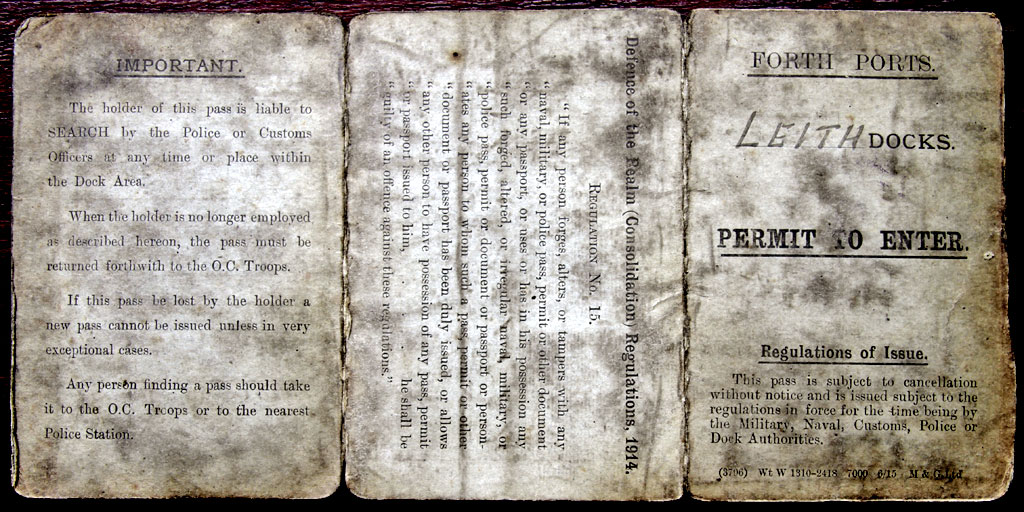 IMPORTANT.
The holder of this pass is liable to
SEARCH by the Police or Customs
Officers at any time or place within
the Dock Area.
When the holder is no longer employed
as described hereon, the pass must be
returned forthwith to the O.C. Troops.
If this pass be lost by the holder a
new pass cannot be issued unless in very
exceptional cases.
Any person finding a pass should take
it to the O.C. Troops or to the nearest
Police Station.
Defence of the Realm (Consolidation) Regulations, 1914.
REGULATION No. 15.
"If any person forges, alters, or tampers with any
"naval, military, or police pass, permit or other document
"or any passport, or uses or has in his possession any
"such forged, altered, or irregular naval, military, or
"police pass, permit or document or passport or person-
"ates any person to whom such a pass, permit or other
"document or passport has been duly issued, or allows
"any other person to have possession of any pass, permit
"or passport issued to him, . . . . he shall be
"guilty of an offence against these regulations."
FORTH PORTS.
LEITH DOCKS.
PERMIT TO ENTER.
Regulations of Issue.
This pass is subject to cancellation
without notice and is issued subject to the
regulations in force for the time being by
the Military, Naval, Customs, Police or
Dock Authorities.
(3706) Wt W 1310-2418 7000 6/15 M & G Ltd